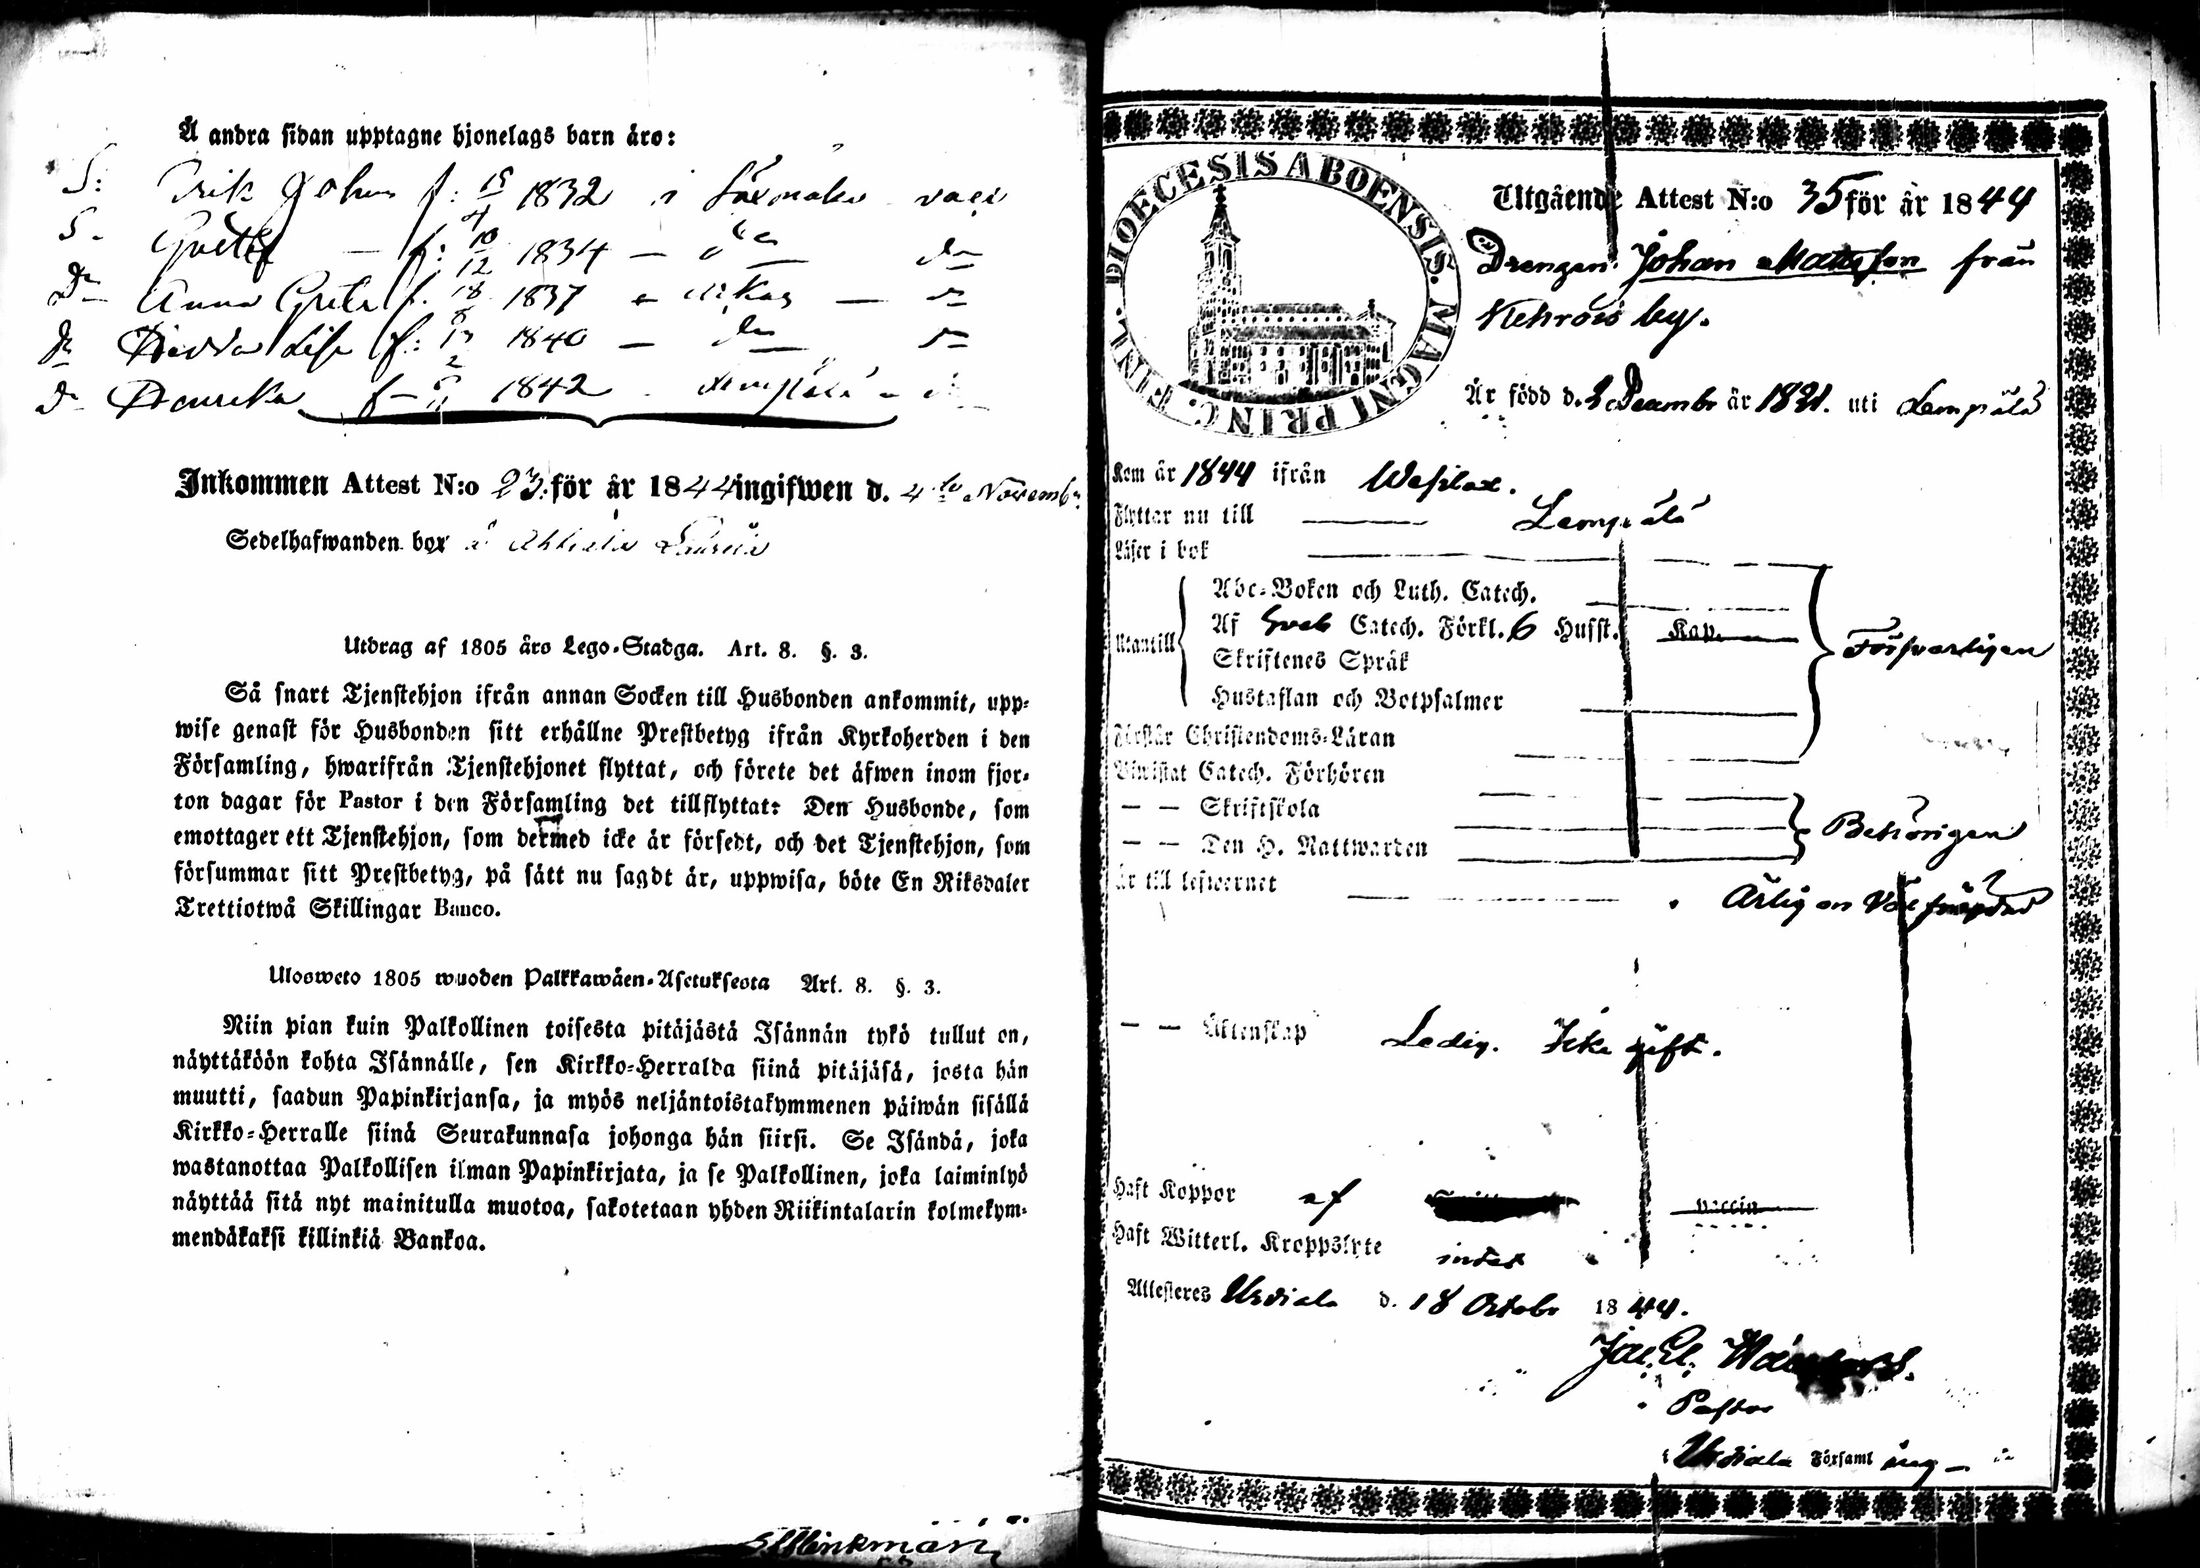 Å andra sidan upptagne hjonelags barn äro:
S: Erik Johan f: 15/4 1832 i Säxmäki vacc
S. f: 10/12 1834
Dr Anna Greta f. 18/8 1837
Dr Hedda Lisa f: 1840
Dr f 1842 Lempälä
Inkommen Attest N:o 23 för år 1844 ingifwen d. 4de Novemb:
Sedelhafwanden bor å Ahtiala
Utdrag af 1805 års Lego-Stadga. Art. 8. §. 3.
Så snart Tjenstehjon ifrån annan Socken till Husbonden ankommit, upp-
wise genast för Husbonden sitt erhållne Prestbetyg ifrån Kyrkoherden i den
Församling, hwarifrån Tjenstehjonet flyttat, och förete det äfwen inom fjor-
ton dagar för Pastor i den Församling det tillflyttat: Den Husbonde, som
emottager ett Tjenstehjon, som dermed icke är försedt, och det Tjenstehjon, som
försummar sitt Prestbetyg, på sätt nu sagdt är, uppwisa, böte En Riksdaler
Trettiotwå Skillingar Banco.
Ulosweto 1805 wuoden Palkkawäen-Asetuksesta Art. 8. §. 3.
Niin pian kuin Palkollinen toisesta pitäjästä Isännän tykö tullut on,
näyttäköön kohta Isännälle, sen Kirkko-Herralda siinä pitäjäsä, josta hän
muutti, saadun Papinkirjansa, ja myös neljäntoistakymmenen päiwän sisällä
Kirkko-Herralle siinä Seurakunnasa johonga hän siirsi. Se Isändä, joka
wastanottaa Palkollisen ilman Papinkirjata, ja se Palkollinen, joka laiminlyö
näyttää sitä nyt mainitulla muotoa, sakotetaan yhden Riikintalarin kolmekym-
mendäkaksi killinkiä Bankoa.
DIOECESIS ABOENSIS. MAGNI PRINC. FINL.
Utgående Attest N:o 35 för år 1844
Drengen Johan Mattsson från
Kehrois by.
Är född d. 2 Decembr år 1821. uti Lempälä
Kom år 1844 ifrån Wesilax.
Flyttar nu till Lempälä
Läser i bok
Utantill
Abc-Boken och Luth. Catech.
Af Sveb Catech. Förkl. 6 Hufst. Kap.
Skriftenes Språk
Hustaflan och Botpsalmer
Försvarligen
Förstår Christendoms-Läran
Biwistat Catech. Förhören
— — Skriftskola
— — Den H. Nattwarden
Behörigen
Är till lefwernet Ärlig on Välfrägdad
— — Äktenskap Ledig. Icke gift.
Haft Koppor af vaccin
Haft Witterl. Kroppslyte intet
Attesteres Urdiala d. 18 Octobr 1844.
Pastor
i Urdiala Församling